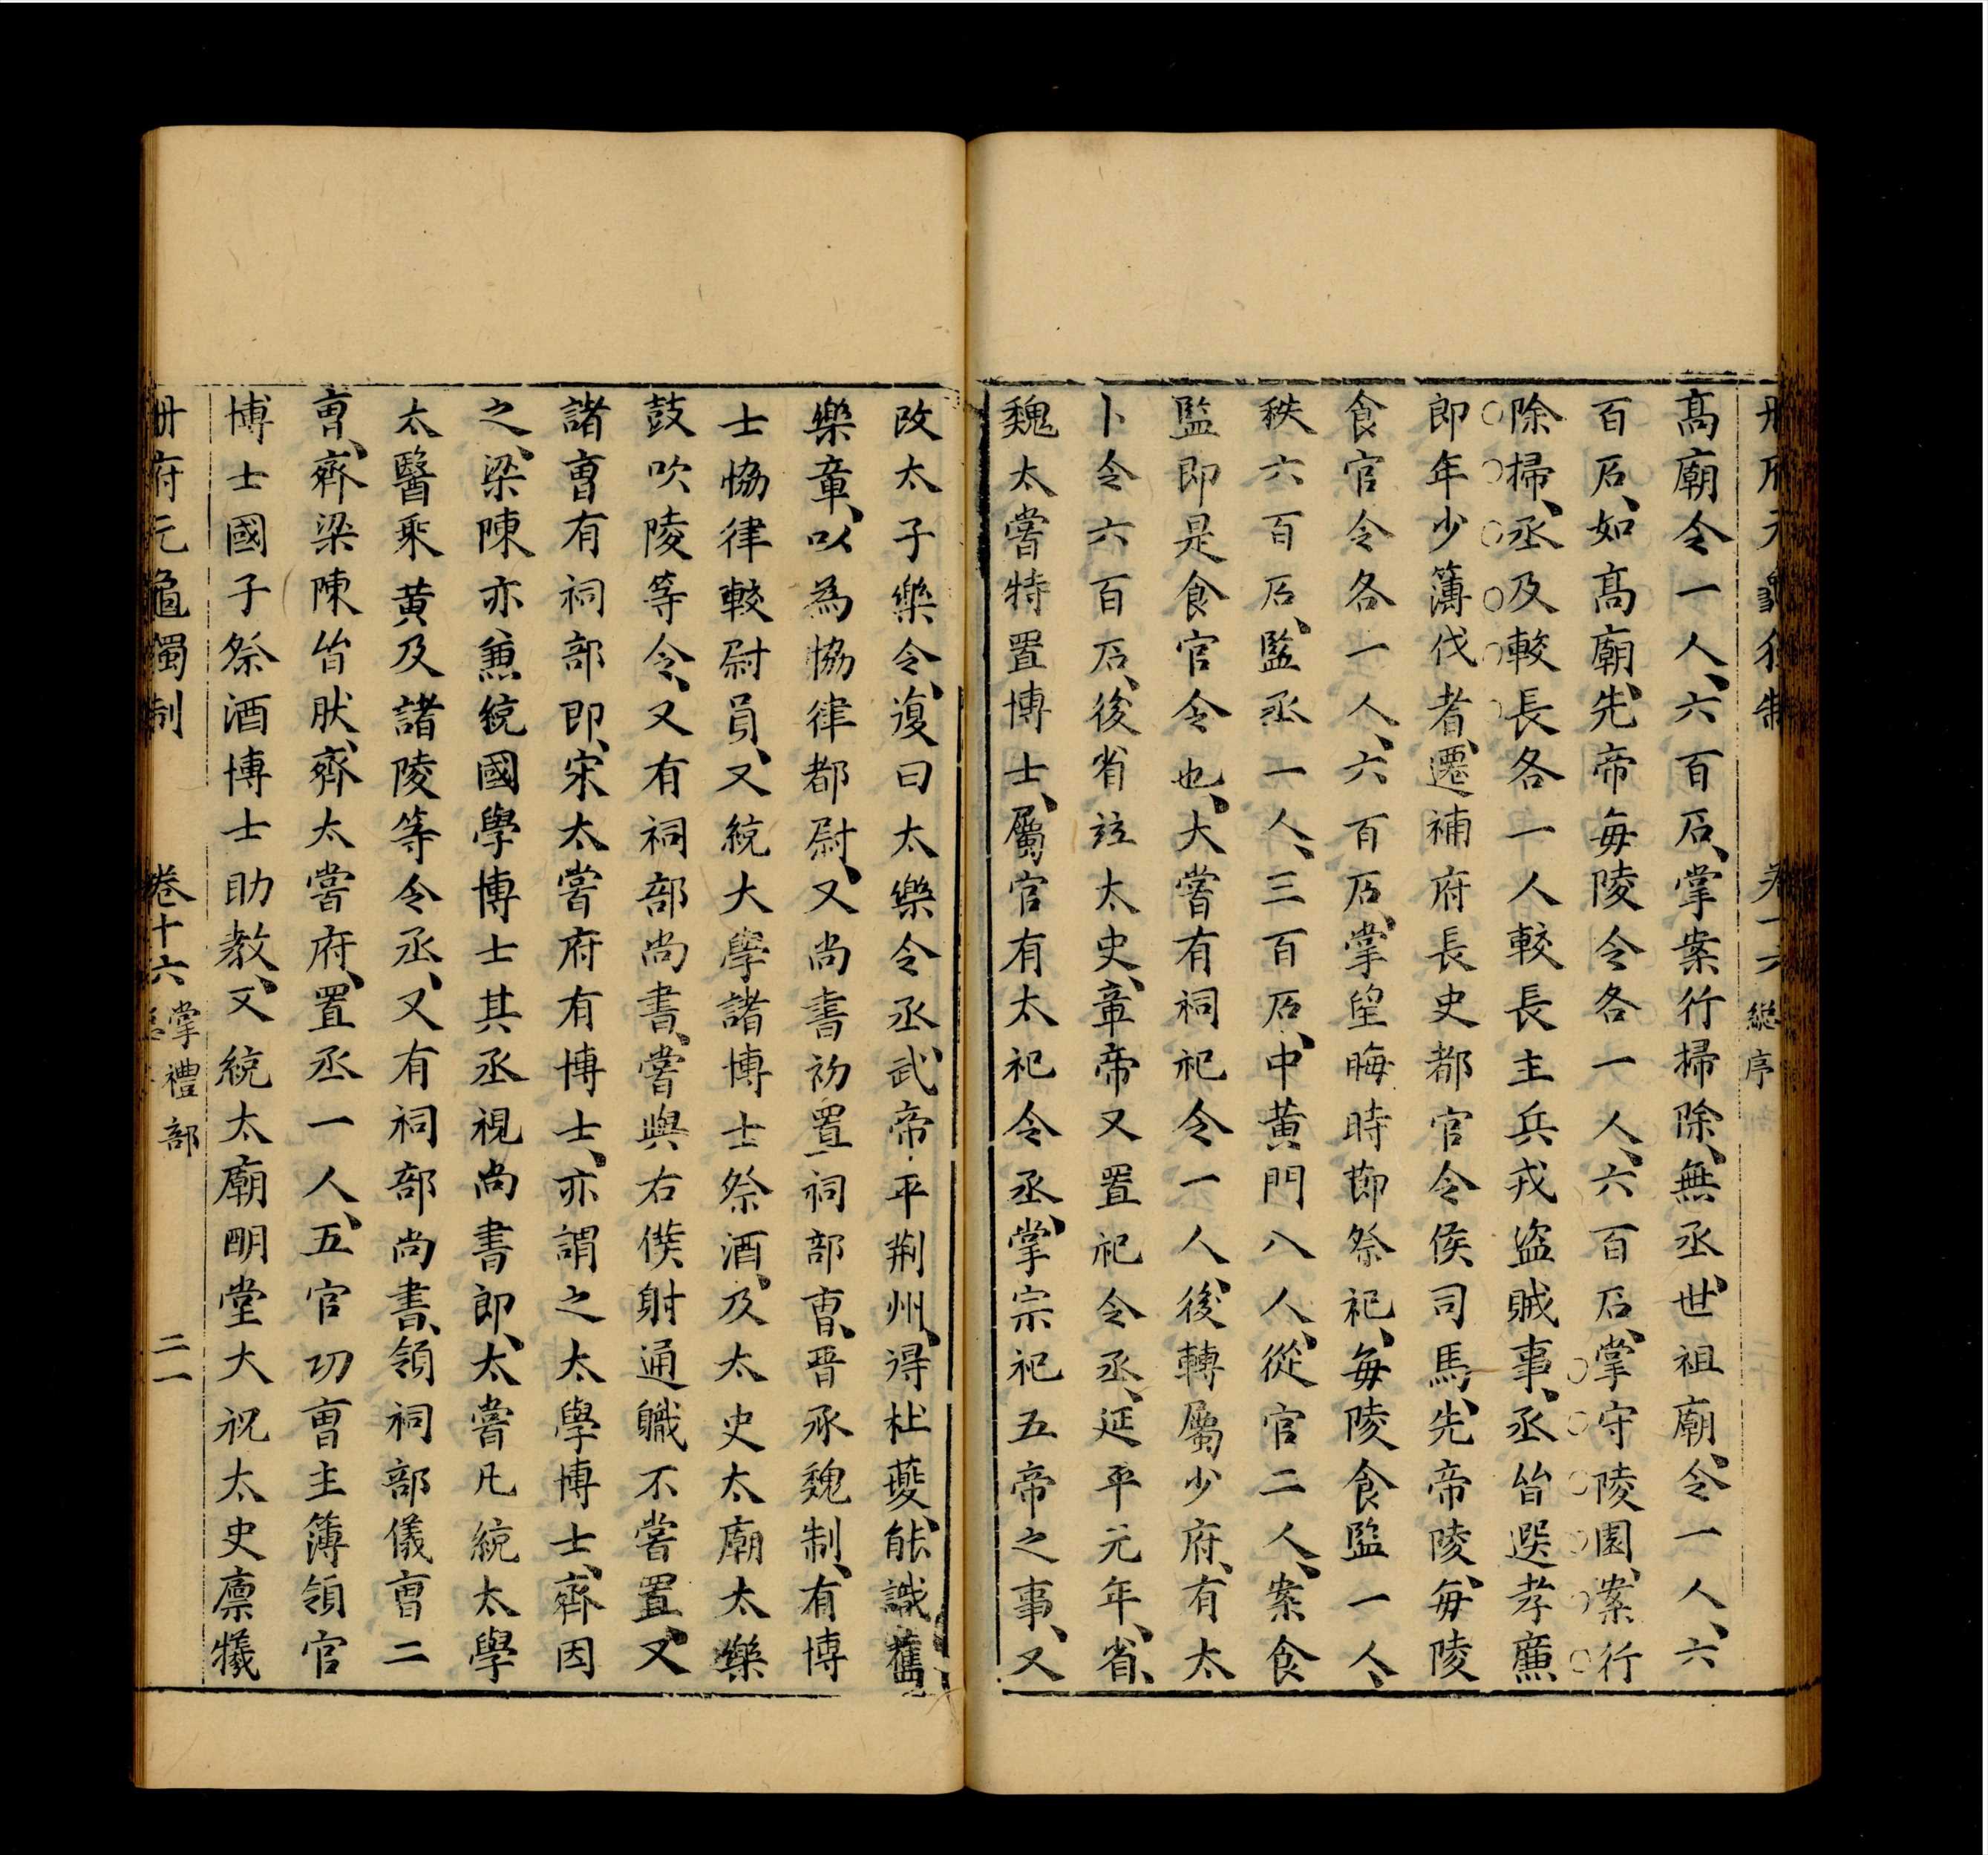 冊府元龜獨制 卷十六 總序
髙廟令一人、六百石、掌案行掃除、無丞、世祖廟、令一人、六
百石、如髙廟、先帝每陵令各一人、六百石、掌守陵園、案行
除掃、丞、及較長各一人較長主兵戎盜賊事、丞皆選孝廉
郎年少簿伐者、遷補府長史都官令侯司馬、先帝陵、每陵
食官令各一人、六百石、掌望晦時節祭祀、每陵食監一人、
秩六百石、監丞一人、三百石、中黄門八人、從官二人、案食
監即是食官令也、大甞有祠祀令一人、後轉屬少府、有太
卜令六百石、後省竝太史、章帝又置祀令丞、延平元年、省、
魏太甞特置博士、屬官有太祀令丞、掌宗祀五帝之事、又
改太子樂令、復曰太樂令丞、武帝平荆州、得杜夔、能識舊
樂章、以為協律都尉、又尚書初置祠部曺、晉承魏制、有博
士協律較尉員、又統大學諸博士祭酒、及太史太廟太樂
鼓吹陵等令、又有祠部尚書、甞與右僕射通職不甞置、又
諸曺有祠部郎、宋太甞府有博士、亦謂之太學博士、齊因
之、梁陳亦兼統國學博士其丞視尚書郎、太甞凡統太學
太醫乘黄及諸陵等令丞、又有祠部尚書、領祠部儀曺二
曺、齊梁陳皆肰、齊太甞府、置丞一人、五官功曺主簿領官
博士國子祭酒博士助教、又統太廟明堂大祝太史廩犧
冊府元龜獨制 卷十六 掌禮部 二一